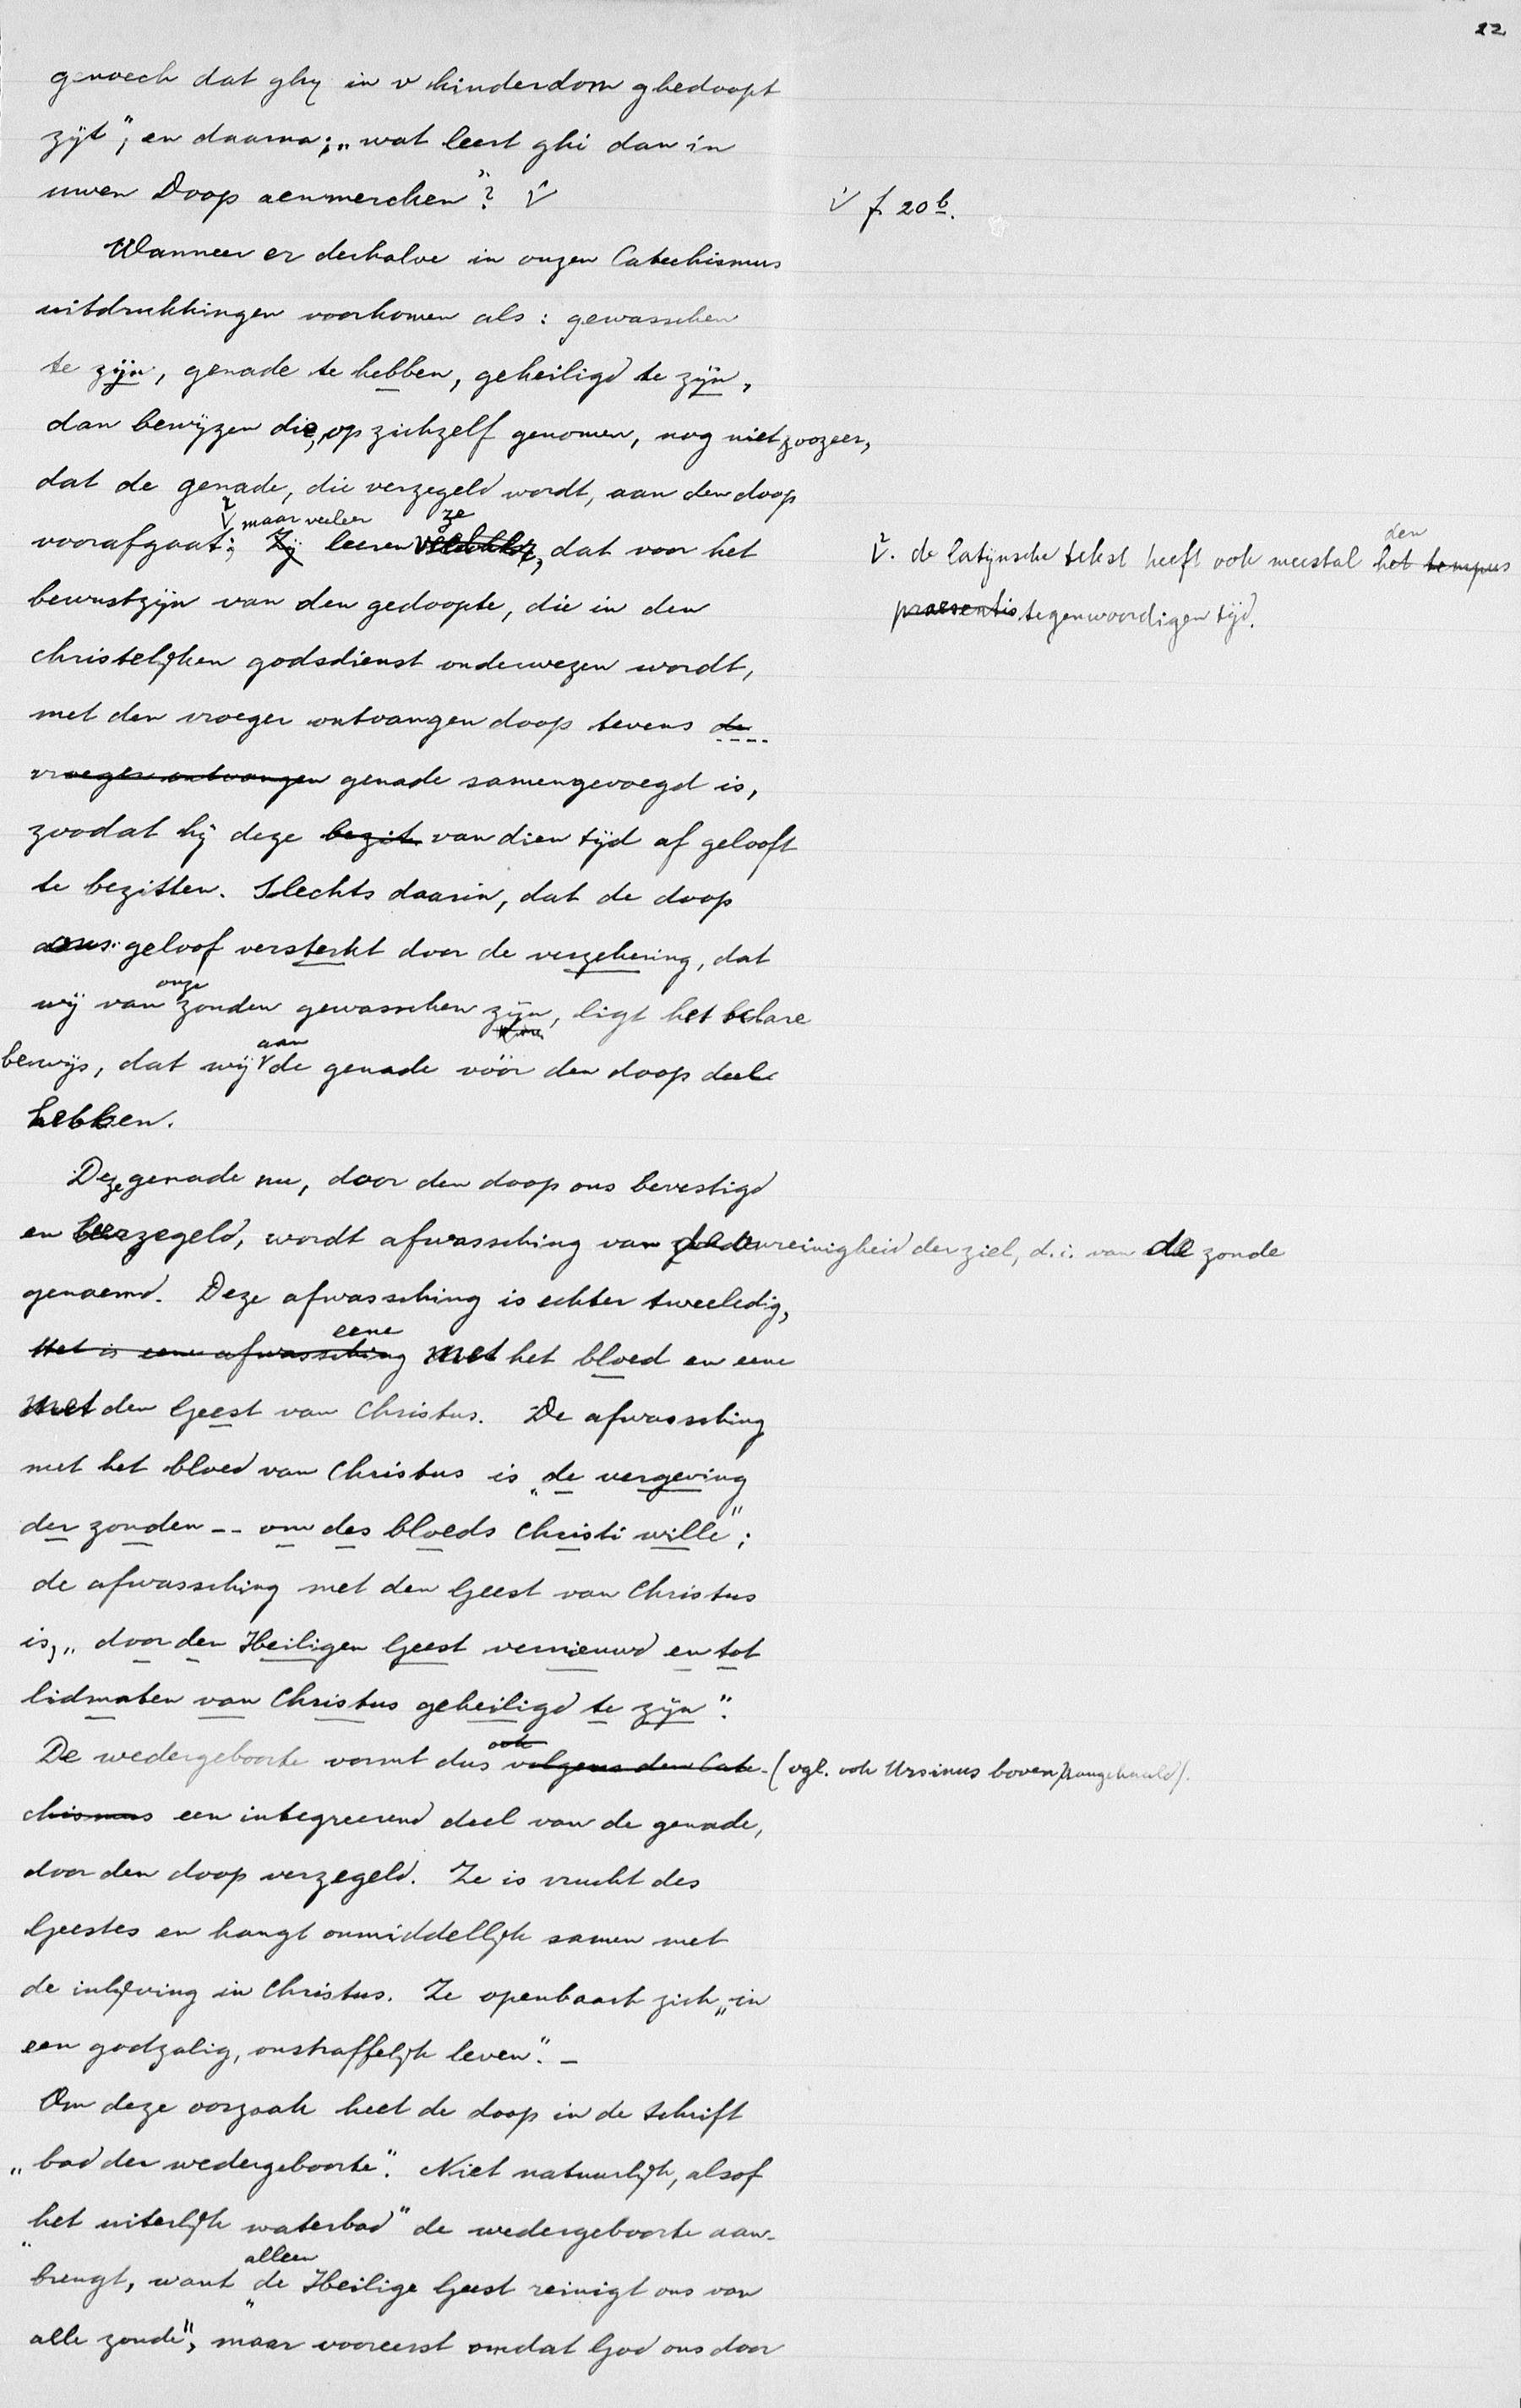 22
genoech dat ghy in v kinderdom ghedoopt
zijt", en daarna; „wat leert ghi dan in
uwen Doop aenmercken"? √
√ f 20 b.
Wanneer er derhalve in onzen Catechismus
uitdrukkingen voorkomen als: gewasschen
te zijn, genade te hebben, geheiligd te zijn,
dan bewijzen die, op zichzelf genomen, nog niet zoozeer,
dat de genade, die verzegeld wordt, aan den doop
maar veeleer ze
voorafgaat; Zij leeren dat voor het
2√. de latijnsche tekst heeft ook meestal het tempus den
praesentis tegenwoordigen tijd.
bewustzijn van den gedoopte, die in den
christelijken godsdienst onderwezen wordt,
met den vroeger ontvangen doop tevens de
vroeger ontvangen genade samengevoegd is,
zoodat hij deze bezit van dien tijd af gelooft
te bezitten. Slechts daarin, dat de doop
ons geloof versterkt door de verzekering, dat
wij van onze zonden gewasschen zijn, ligt het klare
bewijs, dat wij aan de genade vóór den doop deel
hebben.
Deze genade nu, door den doop ons bevestigd
en verzegeld, wordt afwassching van de onreinigheid der ziel, d.i. van de zonde
genaemd. Deze afwassching is echter tweeledig,
Het is eene afwassching eene met het bloed en eene
met den Geest van Christus. De afwassching
met het bloed van Christus is „de vergeving
der zonden -- om des bloeds Christi wille";
de afwassching met den Geest van Christus
is, „door den Heiligen Geest vernieuwd en tot
lidmaten van Christus geheiligd te zijn".
De wedergeboorte vormt dus ook volgens den Cate- (vgl. ook Ursinus boven aangehaald).
chismus een integreerend deel van de genade,
door den doop verzegeld. Ze is vrucht des
Geestes en hangt onmiddellijk samen met
de inlijving in Christus. Ze openbaart zich „in
een godzalig, onstraffelijk leven". -
Om deze oorzaak heet de doop in de Schrift
„bad der wedergeboorte". Niet natuurlijk, alsof
„het uiterlijk waterbad" de wedergeboorte aan-
brengt, want „alleen de Heilige Geest reinigt ons van
alle zonde", maar vooreerst omdat God ons door